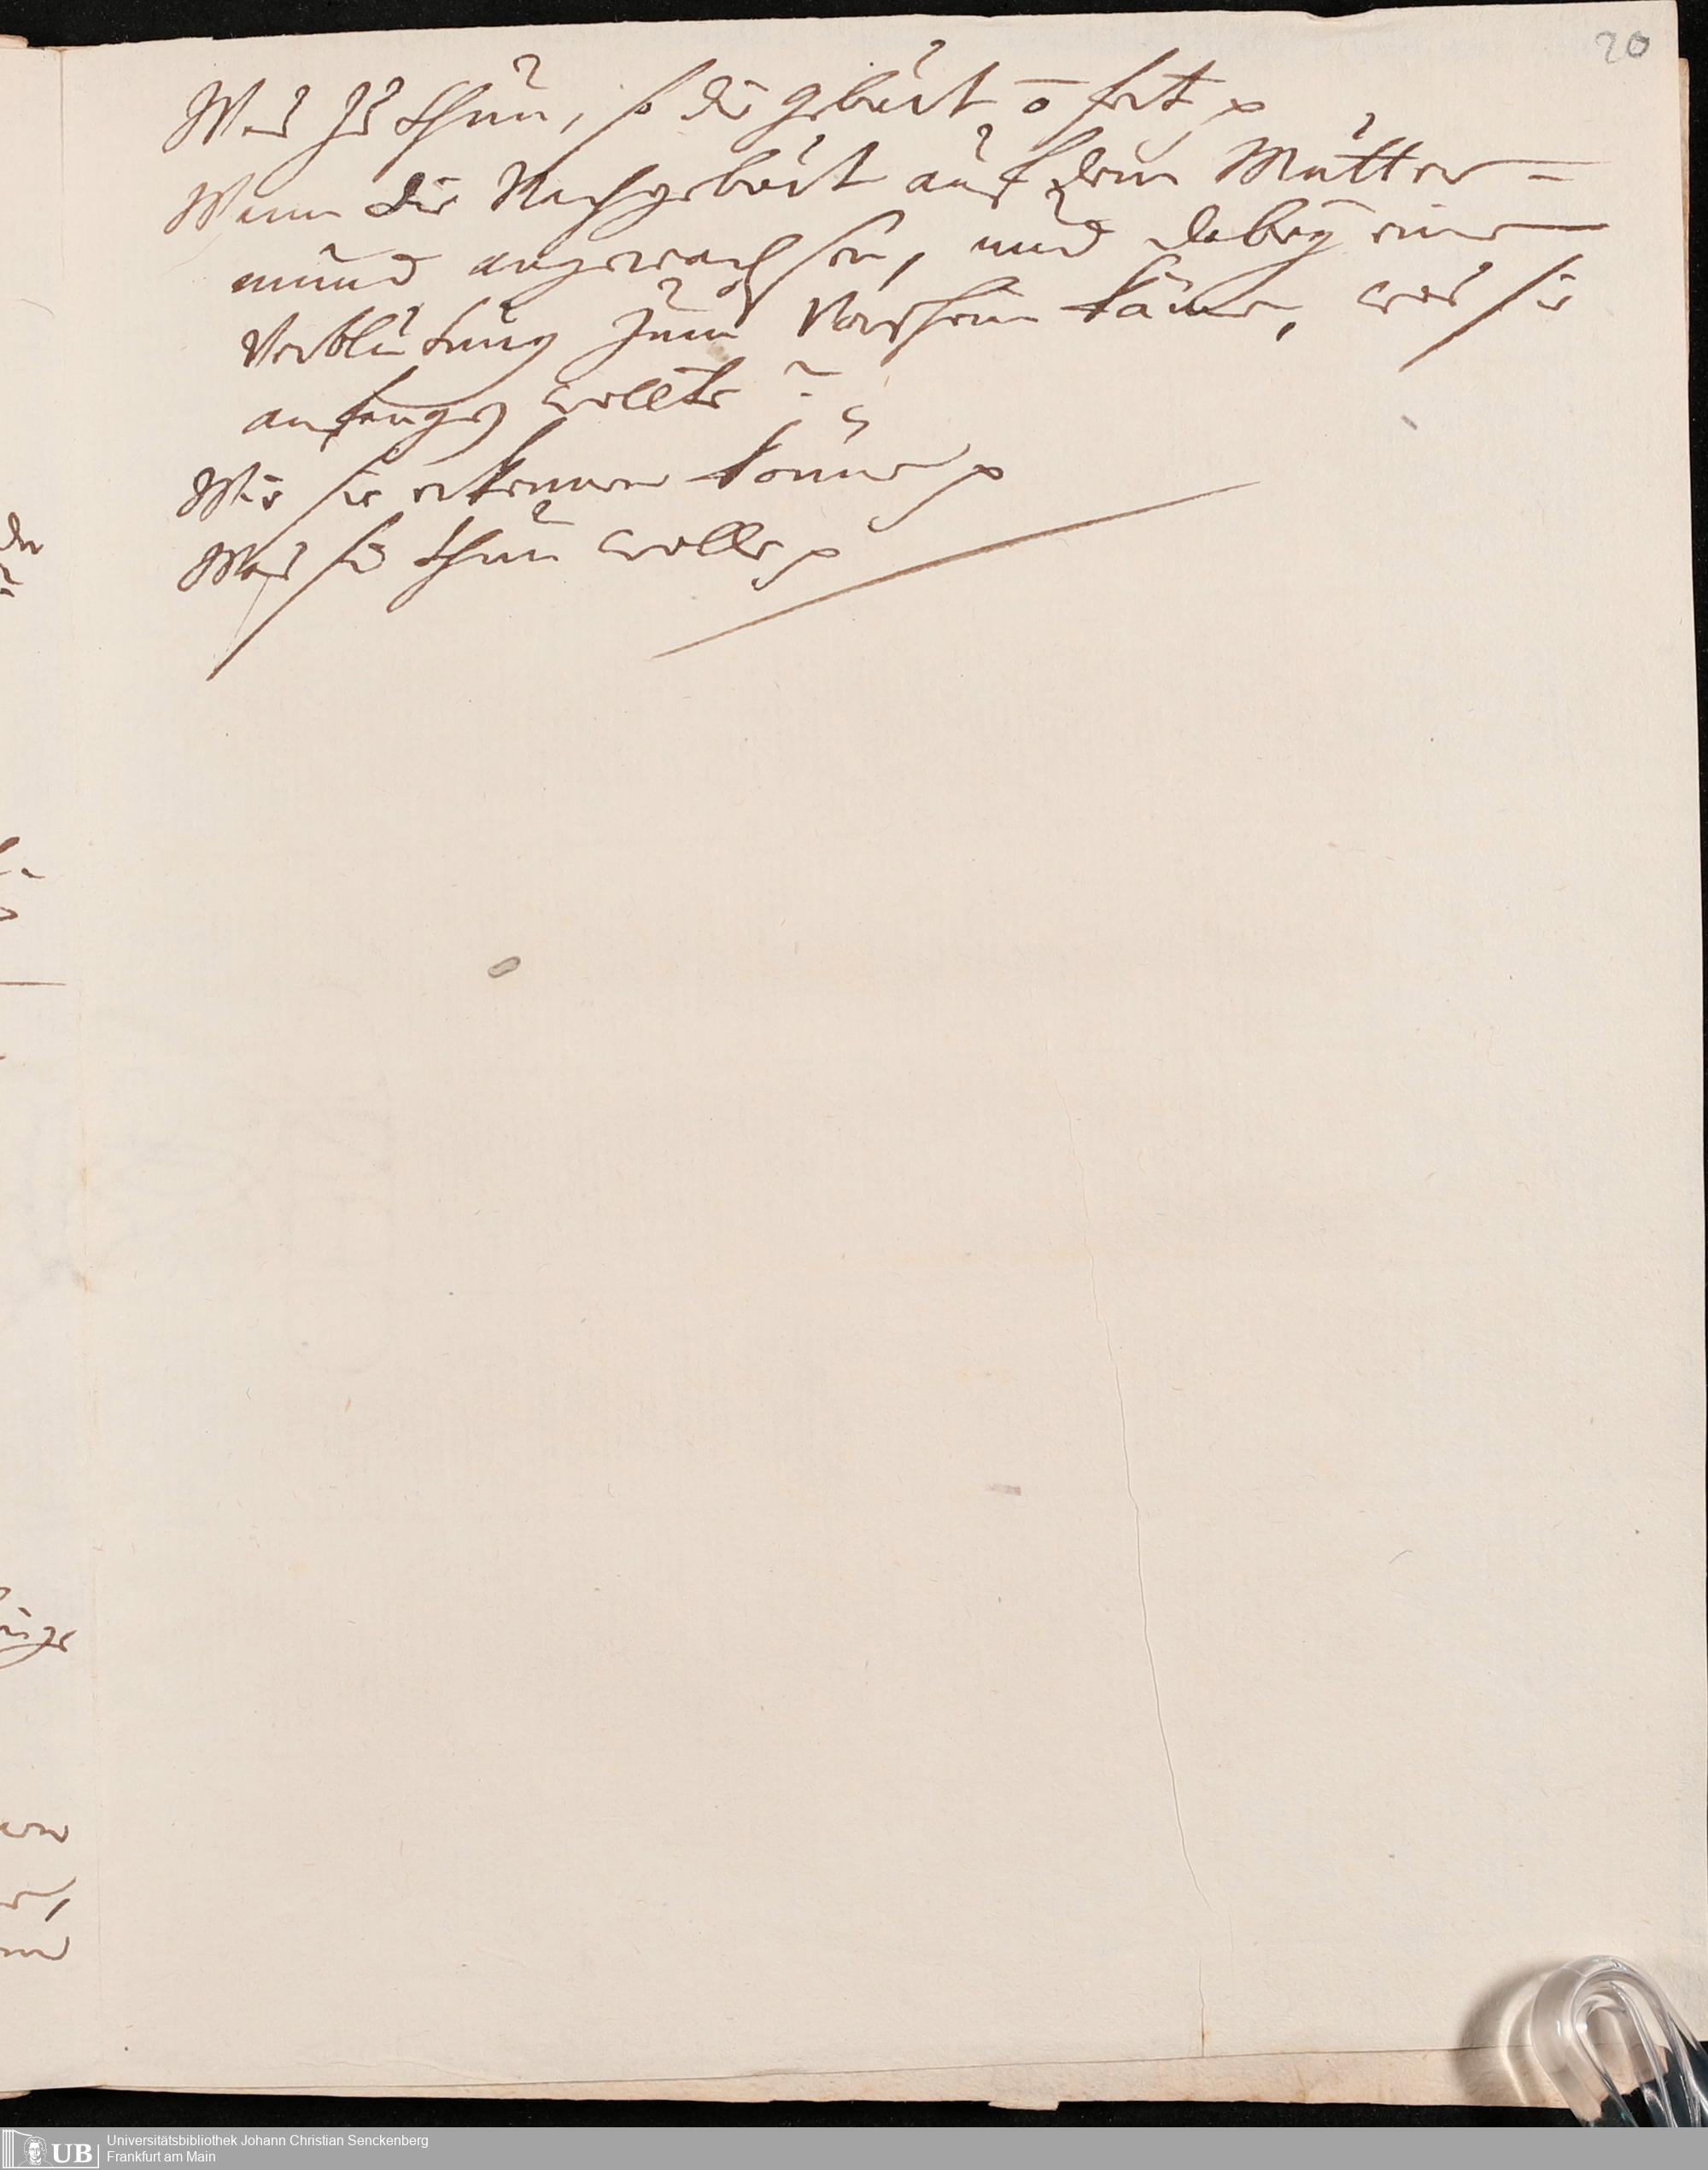 20
Was zu thun, so die geburt o fort p
Wenn die Nachgeburt auf dem Mutter=
mund angewachsen, und dabey eine
Verblutung zum Vorschein käme, was sie
anfangen wollte?
Wie sie erkennen könne p
Was sie thun wolle p
UB
Universitätsbibliothek Johann Christian Senckenberg
Frankfurt am Main